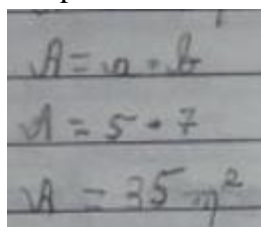 A = a · b
A = 5 · 7
A = 35 m²